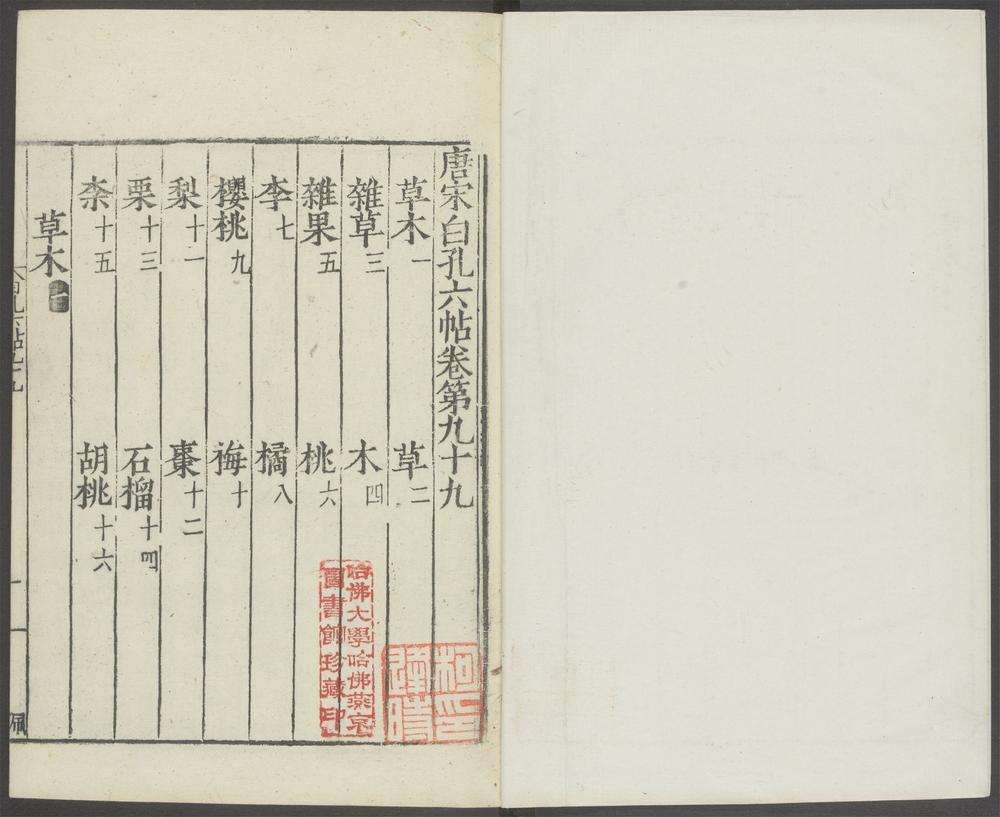 唐宋白孔六帖卷第九十九
草木一 草二
雜草三 木四
雜果五 桃六
李七 橘八
櫻桃九 梅十
梨十一 棗十二
栗十三 石榴十四
柰十五 胡桃十六
草木一
哈佛大學哈佛燕京
圖書館珍藏印